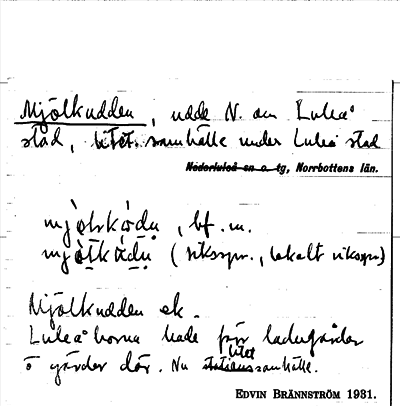 Mjölkudden, udde N. om Luleå
stad, litet samhälle under Luleå stad
Nederluleå sn o. tg, Norrbottens län.
bf. m.
(riksspr., lokalt riksspr.)
Mjölkudden ek.
Luleåborna hade förr ladugårdar
o gärder där. Nu litet stationssamhälle.
EDVIN BRÄNNSTRÖM 1931.